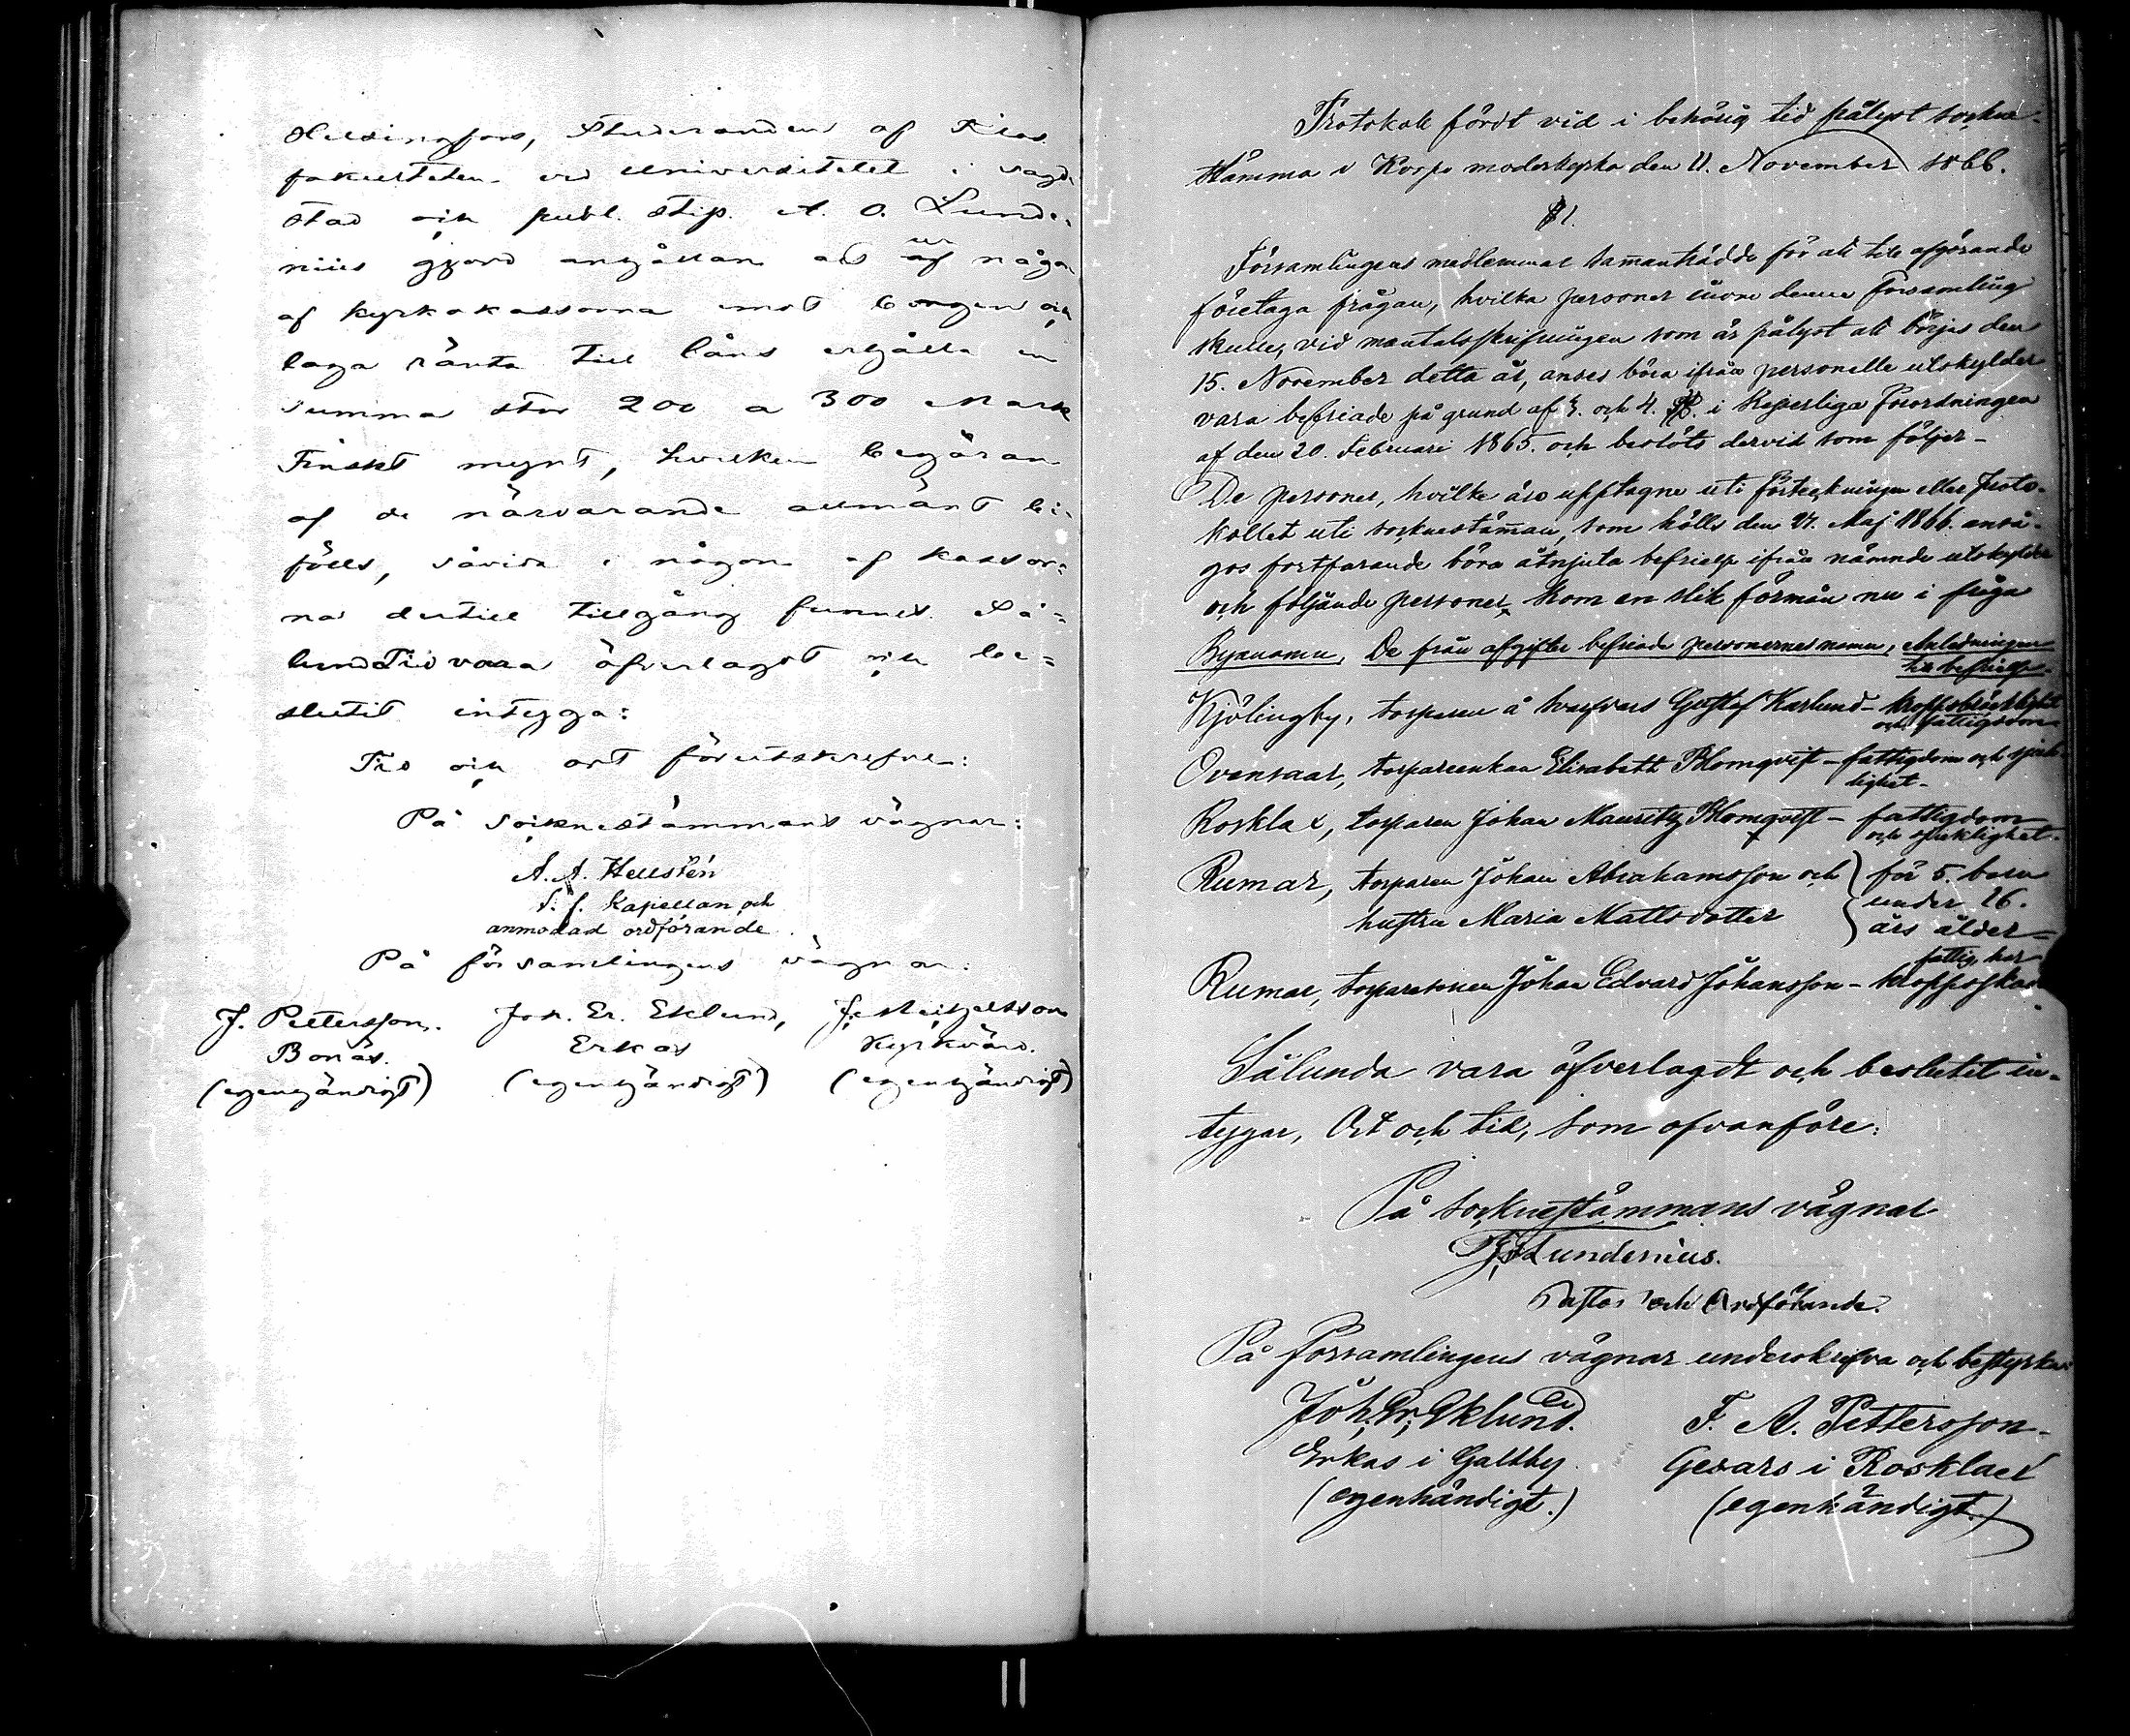 Helsingfors, Studeranden af
fakulteten vid Universitetet i sagde
stad och publ. stip. A. O. Lunde-
nius gjord anhållan att ur af någon
af kyrkokassorna emot borgen och
laga ränta till låns erhålla en
summa stor 200 a 300 Mark
Finskt mynt, hvilken begäran
af de närvarande allmänt bi-
fölls, såvida i någon af kassor-
na dertill tillgång funnes. Så-
lunda vara öfverlagdt och be-
slutit intyga:
Tid och ort förutskrefne:
På sockenstämmans vägnar:
A. A. Hellstén
v. f. Kapellan och
anmodad ordförande.
På församlingens vägnar:
J. Pettersson. Joh. Er. Eklund, J. Michelsson
Bonäs. Erkas Kyrkvärd.
(egenhändigt) (egenhändigt) (egenhändigt)
Protokoll fördt vid i behörig tid pålyst sockne-
stämma i Korpo moderkyrka den 11. November 1866.
§ 1.
Församlingens medlemmar sammanträdde för att till afgörande
företaga frågan, hvilka personer inom denna församling
skulle, vid mantalsskrifningen som är pålyst att börjas den
15. November detta år, anses böra ifrån personelle utskylder
vara befriade på grund af 3. och 4. §§. i Kejserliga Förordningen
af den 20. Februari 1865. och beslöts dervid som följer-
De personer, hvilke äro upptagne uti förteckningen eller proto-
kollet uti socknestämman, som hölls den 27. Maj 1866. anså-
gos fortfarande böra åtnjuta befrielse ifrån nämnde utskylder
och följande personer kom en slik förmån nu i fråga
Byanamn, De från afgifter befriade personernes namn, Anledningen
till befrielse.
Kjölingby, torparen å Gustaf Karlund - kroppsbräcklighet
och fattigdom
Ovensaar, torpareenkan Elisabeth Blomqvist - fattigdom och sjuk-
lighet-
Rosklax, torparen Johan Mauritz Blomqvist - fattigdom
och sjuklighet.
Rumar, torparen Johan Abrahamsson och för 5. barn
hustru Maria Mattsdotter under 16.
års ålder-
fattig, har
Rumar, torparesonen Johan Edvard Johansson - kroppsskada
Sålunda vara öfverlagdt och beslutit in-
tygar, Ort och tid, som ofvanföre:
På socknestämmans vägnar
Lundenius.
Pastor och Ordförande.
På församlingens vägnar underskrifva och bestyrka:
Joh. Er. Eklund. F. A. Pettersson-
Erkas i Galtby. Gerars i Rosklax
(egenhändigt.) (egenhändigt.)